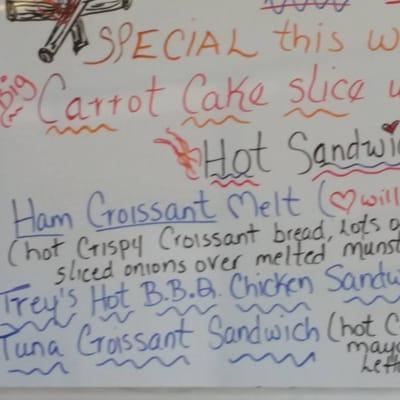 SPECIAL this w
Big Carrot Cake slice
Hot Sandwi
Ham Croissant Melt (will
(hot Crispy Croissant bread, lots o
sliced onions over melted munst
Trey's Hot B.B.Q. Chicken Sandw
Tuna Croissant Sandwich (hot C
mayo
Lett